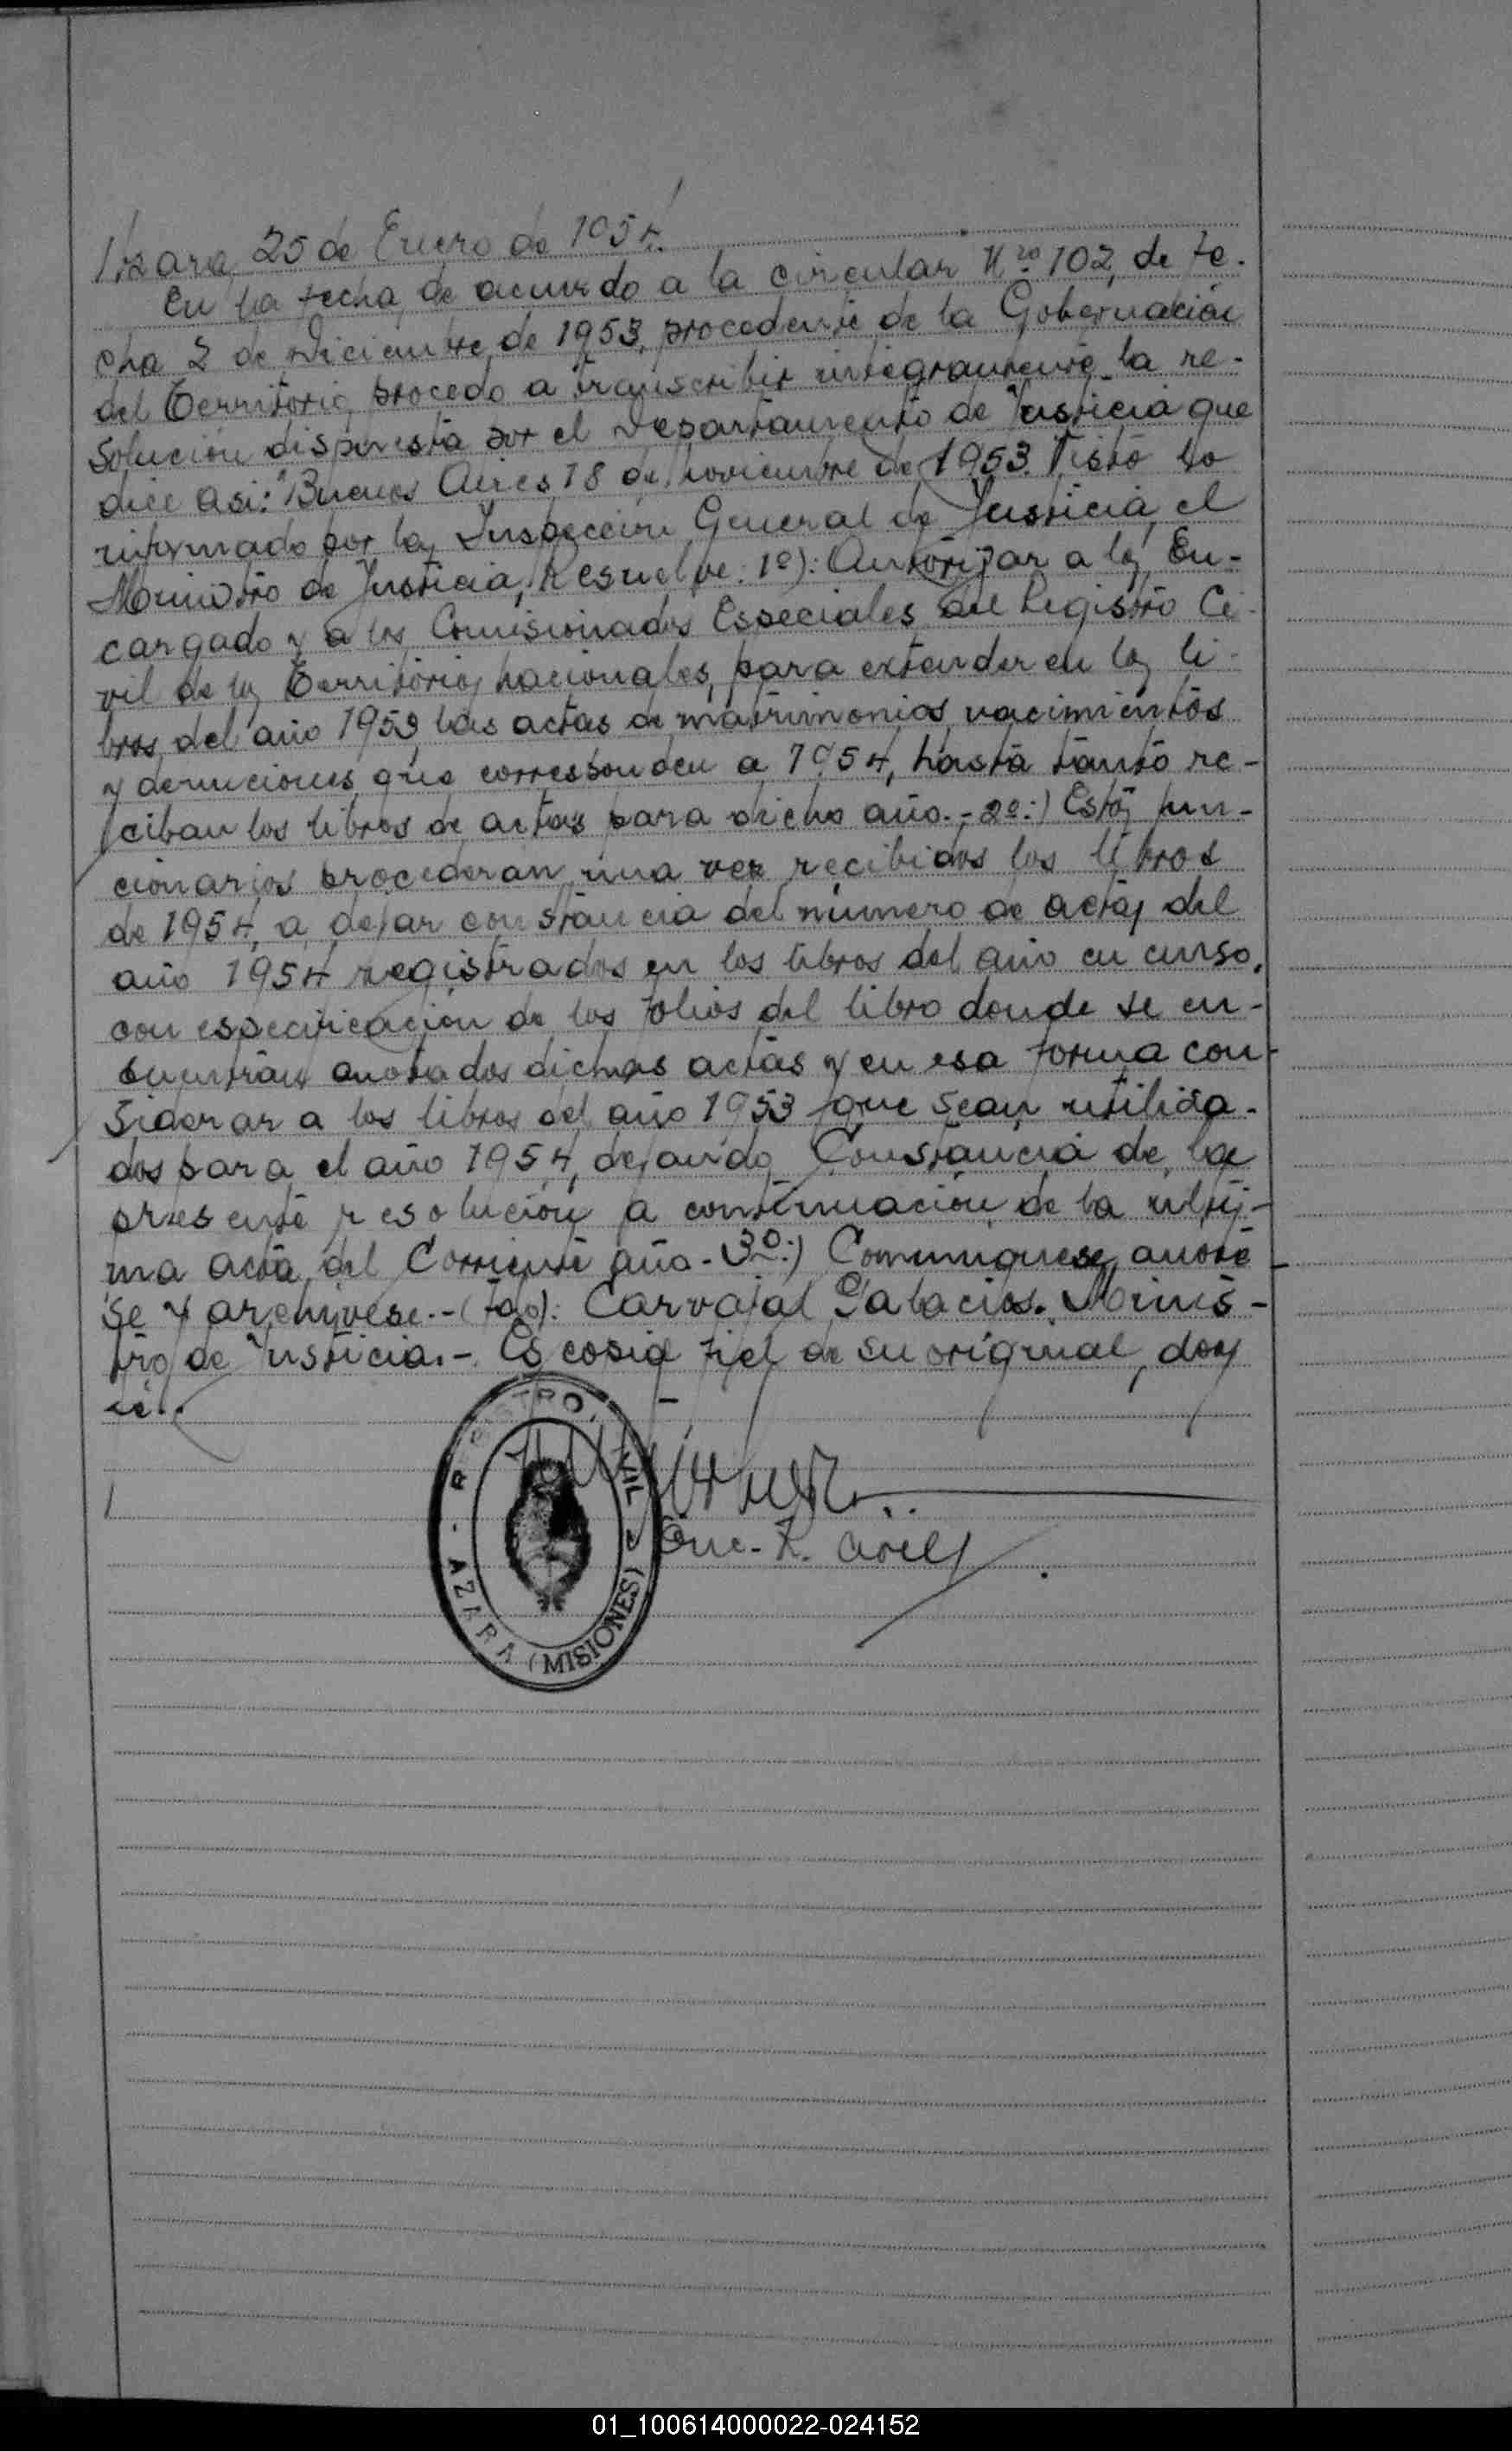 Azara, 25 de Enero de 1954.
En la fecha, de acuerdo a la circular Nro 102, de fe-
cha 2 de Diciembre de 1953, procedente de la Gobernación
del Territorio, procedo a transcribir integramente la re-
solución dispuesta por el Departamento de Justicia que
dice asi: "Buenos Aires 18 de noviembre de 1953. Visto lo
informado por la Inspección General de Justicia, el
Ministro de Justicia, Resuelve: 1º): Autorizar a los En-
cargados y a los Comisionados Especiales del Registro Ci-
vil de los Territorios nacionales, para extender en los li-
bros del año 1953 las actas de matrimonios, nacimientos
y defunciones que corresponden a 1954, hasta tanto re-
ciban los libros de actas para dicho año.- 2º:) Estos fun-
cionarios procederán una vez recibidos los libros
de 1954, a dejar constancia del número de actas del
año 1954 registrados en los libros del año en curso,
con especificación de los folios del libro donde se en-
cuentran anotados dichas actas y en esa forma con-
siderar a los libros del año 1953 que sean utiliza-
dos para el año 1954, dejando Constancia de la
presente resolución a continuación de la últi-
ma acta del Corriente año.- 3º:) Comuniquese, anote
se y archivese.- (Fdo): Carvajal Palacios. Minis-
tro de Justicia.- Es copia fiel de su original, doy
fé.-
Enc. R. Civil
REGISTRO CIVIL
AZARA (MISIONES)
01_100614000022-024152